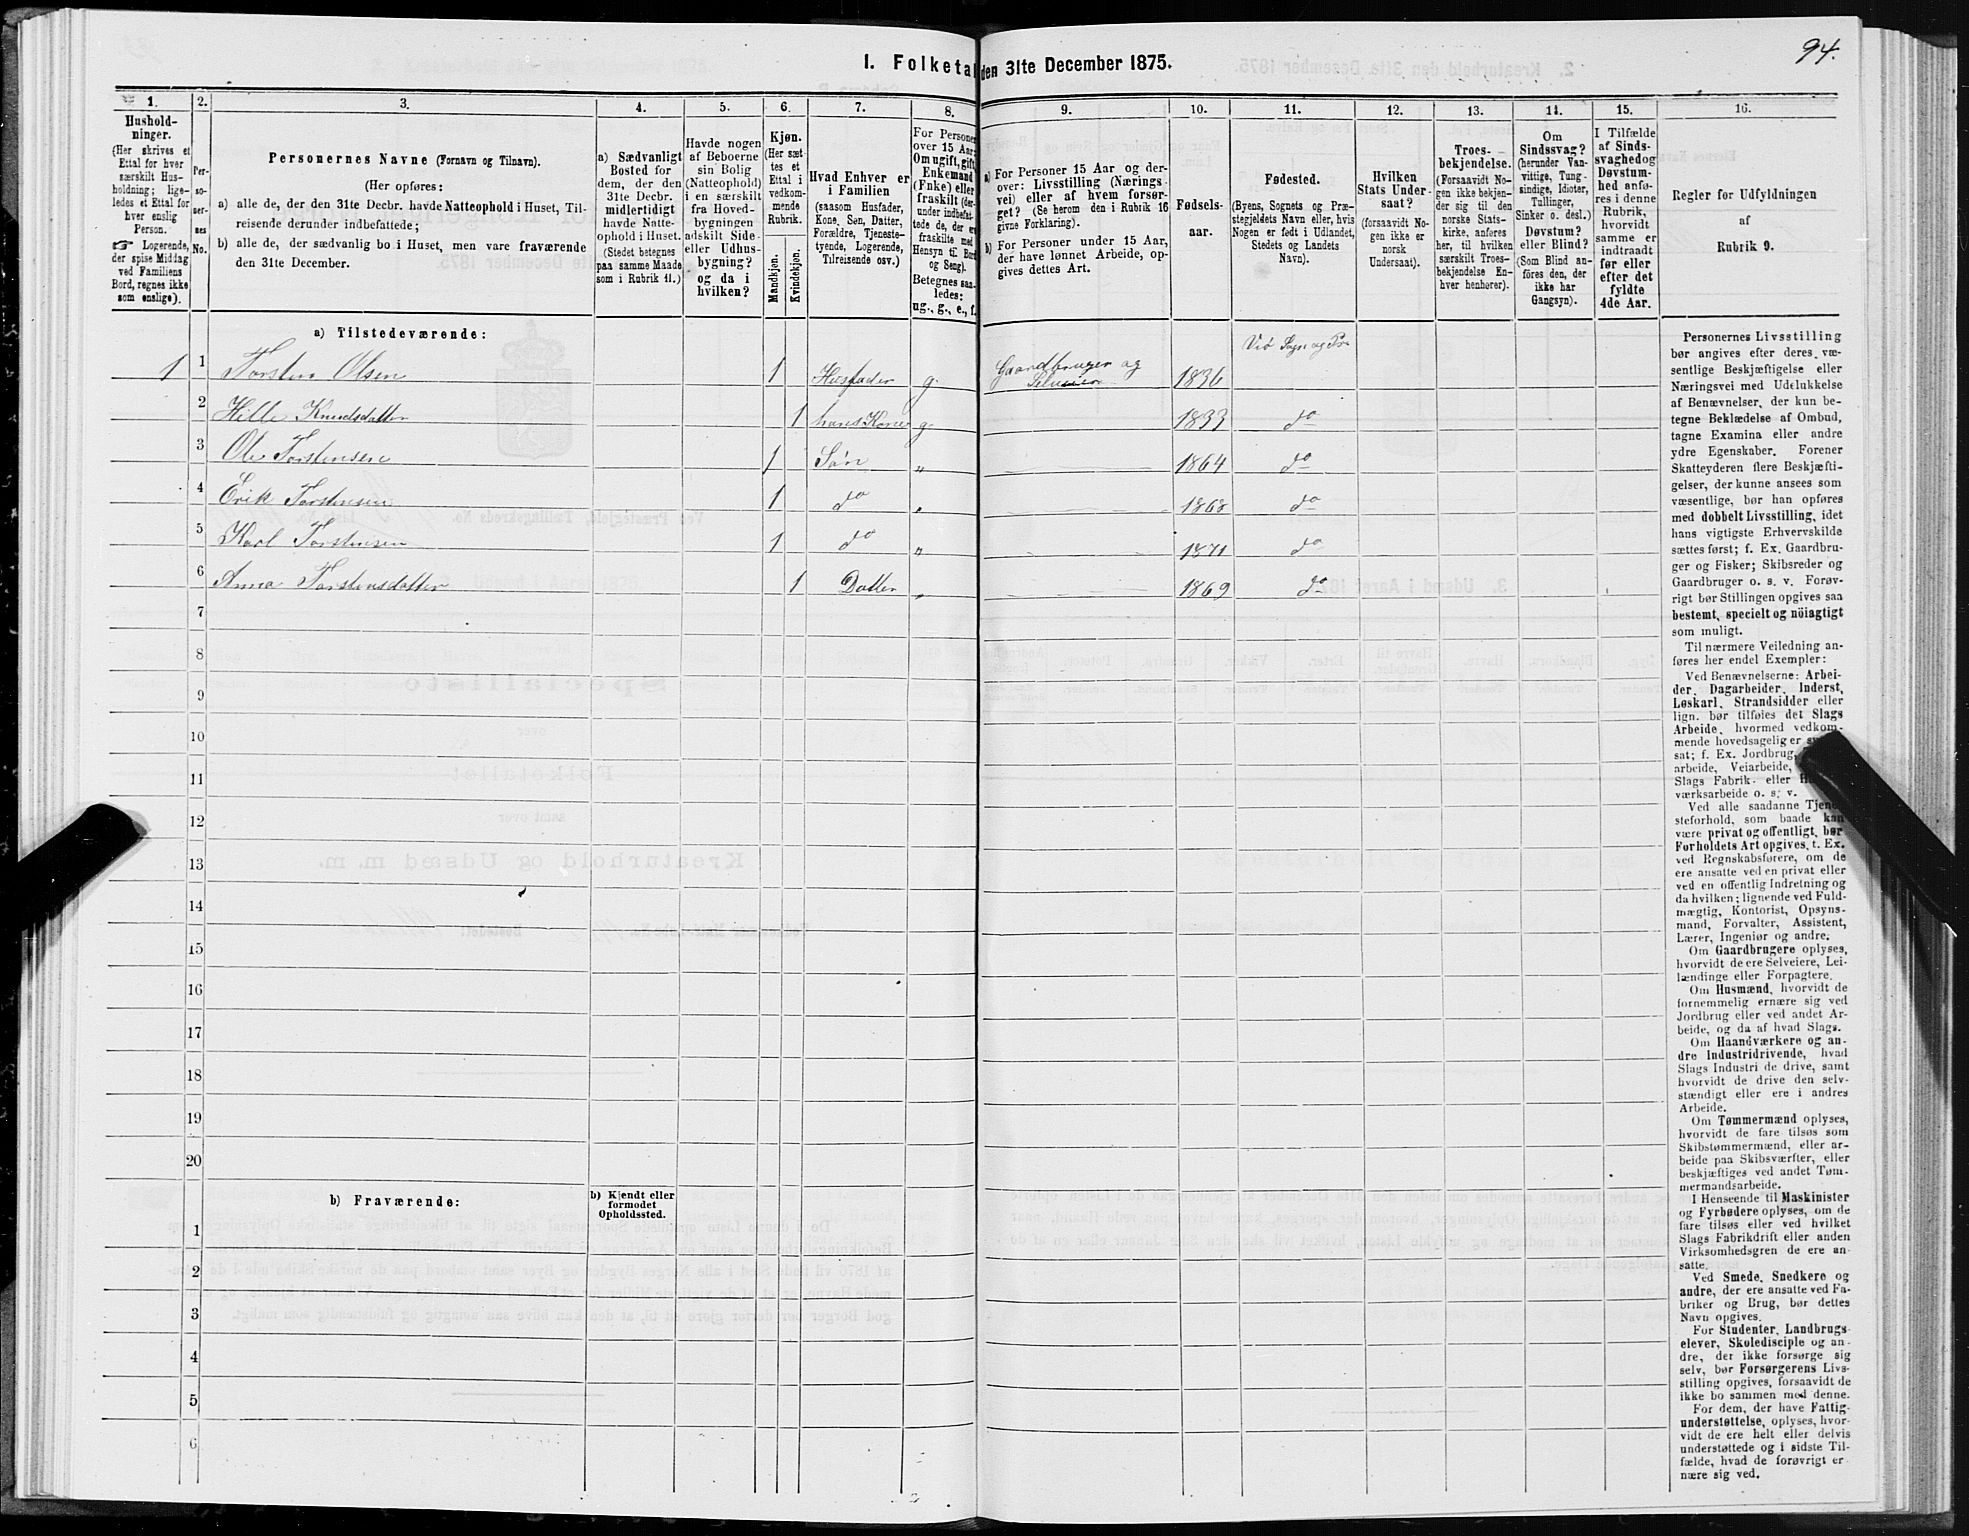 94.
1. Folketal den 31te December 1875.
1. 2. 3. 4. 5. 6. 7. 8. 9. 10. 11. 12. 13. 14. 15. 16.
Hushold-
ninger.
(Her skrives et
Ettal for hver
særskilt Hus-
holdning; lige-
ledes et Ettal for
hver enslig
Person.
☞ Logerende,
der spise Middag
ved Familiens
Bord, regnes ikke
som enslige).
Per-
so-
ner-
nes
No.
Personernes Navne (Fornavn og Tilnavn).
(Her opføres:
a) alle de, der den 31te Decbr. havde Natteophold i Huset, Til-
reisende derunder indbefattede;
b) alle de, der sædvanlig bo i Huset, men vare fraværende
den 31te December.
a) Sædvanligt
Bosted for
dem, der den
31te Decbr.
midlertidigt
havde Natte-
ophold i Huset.
(Stedet betegnes
paa samme Maade
som i Rubrik 11.)
Havde nogen
af Beboerne
sin Bolig
(Natteophold)
i en særskilt
fra Hoved-
bygningen
adskilt Side-
eller Udhus-
bygning?
og da i
hvilken?
Kjøn.
(Her sæt-
tes et
Ettal i
vedkom-
mende
Rubrik.
Mandkjøn.
Kvindekjøn.
Hvad Enhver er
i Familien
(saasom Husfader,
Kone, Søn, Datter,
Forældre, Tjeneste-
tyende, Logerende,
Tilreisende osv.)
For Personer
over 15 Aar:
Om ugift, gift,
Enkemand
(Enke) eller
fraskilt (der-
under indbefat-
tede de, der er
fraskilte med
Hensyn til Bord
og Seng).
Betegnes saa-
ledes:
ug., g., e., f.
a) For Personer 15 Aar og der-
over: Livsstilling (Nærings-
vei) eller af hvem forsør-
get? (Se herom den i Rubrik 16
givne Forklaring).
b) For Personer under 15 Aar,
der have lønnet Arbeide, op-
gives dettes Art.
Fødsels-
aar.
Fødested.
(Byens, Sognets og Præ-
stegjeldets Navn eller, hvis
Nogen er født i Udlandet,
Stedets og Landets
Navn).
Hvilken
Stats Under-
saat?
(forsaavidt No-
gen ikke er
norsk
Undersaat).
Troes-
bekjendelse.
(Forsaavidt No-
gen ikke bekjen-
der sig til den
norske Stats-
kirke, anføres
her, til hvilken
særskilt Troes-
bekjendelse En-
hver henhører).
Om
Sindssvag?
(herunder Van-
vittige, Tung-
sindige, Idioter,
Tullinger,
Sinker o. desl.)
Døvstum?
eller Blind?
(Som Blind an-
føres den, der
ikke har
Gangsyn).
I Tilfælde
af Sinds-
svaghed og
Døvstum-
hed anfø-
res i denne
Rubrik,
hvorvidt
samme er
indtraadt
før eller
efter det
fyldte
4de Aar.
Regler for Udfyldningen
af
Rubrik 9.
a) Tilstedeværende:
1 1 Torsten Olsen 1 Husfader g. Gaardbruger og Selveier 1836 Viö Sogn og Pr
2 Hille Knudsdatter 1 hans Kone g. 1833 do
3 Ole Torstensen 1 Søn „ 1864 do
4 Erik Torstensen 1 do „ 1868 do
5 Karl Torstensen 1 do „ 1871 do
6 Anna Torstensdatter 1 Datter „ 1869 do
7
8
9
10
11
12
13
14
15
16
17
18
19
20
b) Fraværende:
b) Kjendt eller
formodet
Opholdssted.
1
2
3
4
5
6
Personernes Livsstilling
bør angives efter deres væ-
sentlige Beskjæftigelse eller
Næringsvei med Udelukkelse
af Benævnelser, der kun be-
tegne Beklædelse af Ombud,
tagne Examina eller andre
ydre Egenskaber. Forener
Skatteyderen flere Beskjæfti-
gelser, der kunne ansees som
væsentlige, bør han opføres
med dobbelt Livsstilling, idet
hans vigtigste Erhvervskilde
sættes først; f. Ex. Gaardbru-
ger og Fisker; Skibsreder og
Gaardbruger o. s. v. Forøv-
rigt bør Stillingen opgives saa
bestemt, specielt og nöiagtigt
som muligt.
Til nærmere Veiledning an-
føres her endel Exempler:
Ved Benævnelserne: Arbei-
der, Dagarbeider, Inderst,
Løskarl, Strandsidder eller
lign. bør tilføies det Slags
Arbeide, hvormed vedkom-
mende hovedsagelig er
sat; f. Ex. Jordbrug,
arbeide, Veiarbeide,
Slags Fabrik- eller
værksarbeide o. s. v.
Ved alle saadanne Tjene-
steforhold, som baade kan
være privat og offentligt, bør
Forholdets Art opgives, t. Ex.
ved Regnskabsførere, om de
ere ansatte ved en privat eller
ved en offentlig Indretning og
da hvilken; lignende ved Fuld-
mægtig, Kontorist, Opsyns-
mand, Forvalter, Assistent,
Lærer, Ingeniør og andre.
Om Gaardbrugere oplyses,
hvorvidt de ere Selveiere, Lei-
lændinge eller Forpagtere.
Om Husmænd, hvorvidt de
fornemmelig ernære sig ved
Jordbrug eller ved andet Ar-
beide, og da af hvad Slags.
Om Haandværkere og an-
dre Industridrivende, hvad
Slags Industri de drive, samt
hvorvidt de drive den selv-
stændigt eller ere i andres
Arbeide.
Om Tømmermænd oplyses,
hvorvidt de fare tilsøs som
Skibstømmermænd, eller ar-
beide paa Skibsværfter, eller
beskjæftiges ved andet Tøm-
mermandsarbeide.
I Henseende til Maskinister
og Fyrbødere oplyses, om de
fare tilsøs eller ved hvilket
Slags Fabrikdrift eller anden
Virksomhedsgren de ere an-
satte.
Ved Smede, Snedkere og
andre, der ere ansatte ved Fa-
briker og Brug, bør dettes
Navn opgives.
For Studenter, Landbrugs-
elever, Skoledisciple og an-
dre, der ikke forsørge sig
selv, bør Forsørgerens Livs-
stilling opgives, forsaavidt de
ikke bo sammen med denne.
For dem, der have Fattig-
understøttelse, oplyses, hvor-
vidt de ere helt eller delvis
understøttede og i sidste Til-
fælde, hvad de forøvrigt er-
nære sig ved.